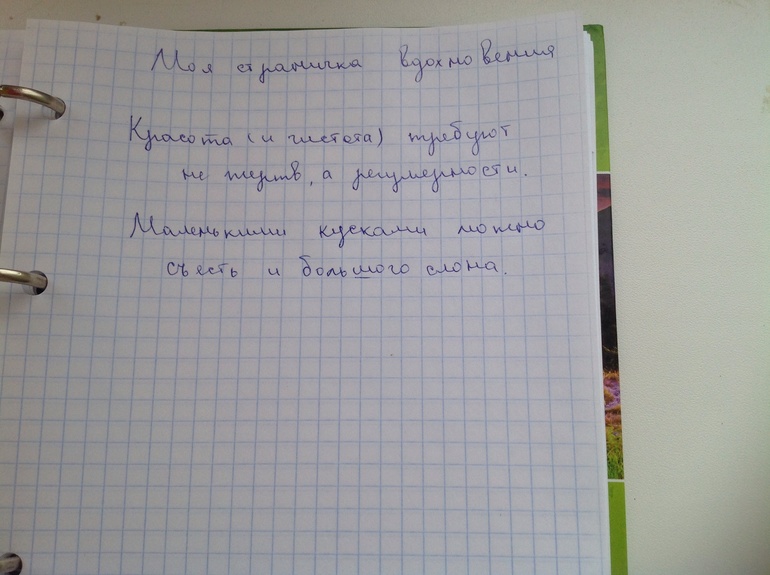 Моя страничка вдохновения
Красота (и чистота) требуют
не жертв, а регулярности.
Маленькими кусками можно
съесть и большого слона.